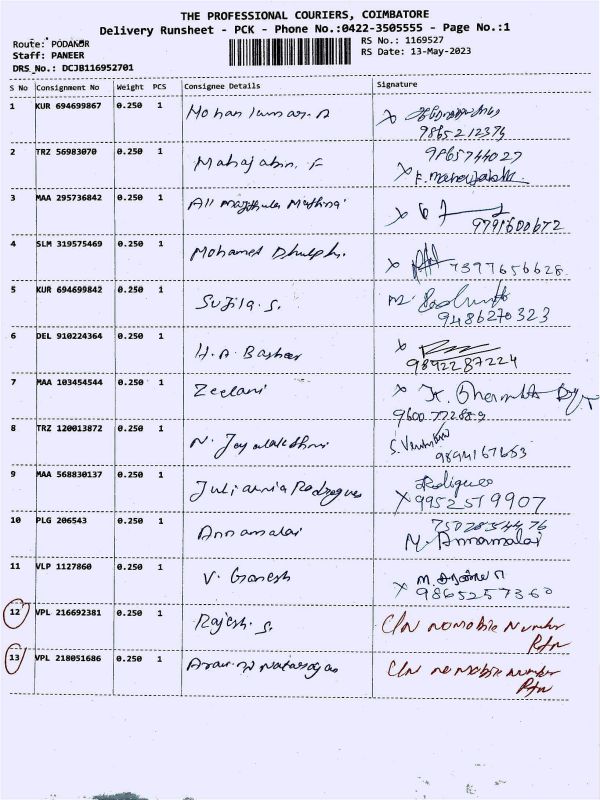 THE PROFESSIONAL COURIERS, COIMBATORE
Delivery Runsheet - PCK - Phone No.:0422-3505555 - Page No.:1
Route: PODANUR
RS No.: 1169527
Staff: PANEER
RS Date: 13-May-2023
DRS_No.: DCJB116952701
S No Consignment No Weight PCS Consignee Details Signature
1 KUR 694699867 0.250 1 Mohan kumar. A
9865212374
2 TRZ 56983070 0.250 1 Mahajabin. F 9865744027
3 MAA 295736842 0.250 1 Ali
9791600672
4 SLM 319575469 0.250 1 Mohamed 7397656628
5 KUR 694699842 0.250 1 Sujila. S.
9486270323
6 DEL 910224364 0.250 1 H. A Basheer
9892287224
7 MAA 103454544 0.250 1 Zeelani
8 TRZ 120013872 0.250 1 N.
9894167653
9 MAA 568830137 0.250 1 Juliannia Rodregues Rodigues
9952519907
10 PLG 206543 0.250 1 Annamalai
N. Annamalai
11 VLP 1127860 0.250 1 V. Ganesh
9865257360
12 VPL 216692381 0.250 1 Rajesh. S. C/N no mobile Number
Rtn
13 VPL 218051686 0.250 1 C/N no mobile number
Rtn